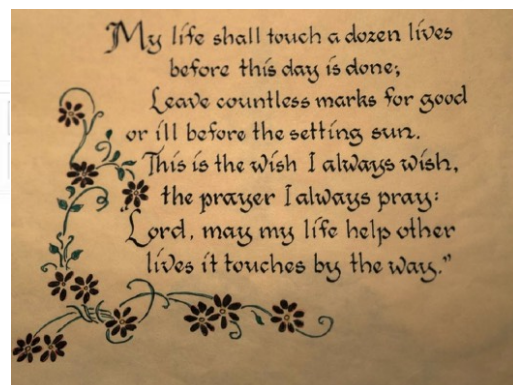 My life shall touch a dozen lives
before this day is done;
Leave countless marks for good
or ill before the setting sun.
"This is the wish I always wish,
the prayer I always pray:
Lord, may my life help other
lives it touches by the way."